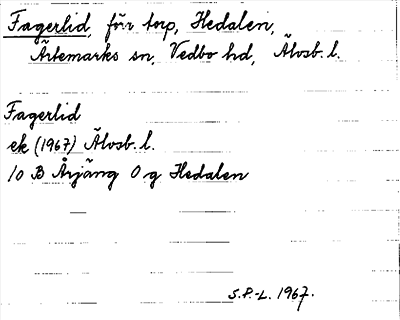 Fagerlid, förr torp, Hedalen,
Ärtemarks sn, Vedbo hd, Älvsb. l.
Fagerlid
ek (1967) Älvsb. l.
10 B Årjäng 0 g Hedalen
S.P.-L. 1967.